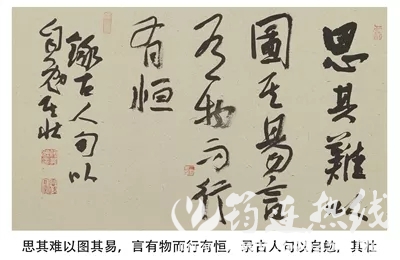 思其難以
圖其易言
有物而行
有恒
録古人句以
自勉其壮
筠连热线
思其难以图其易，言有物而行有恒，录古人句以自勉，其壮